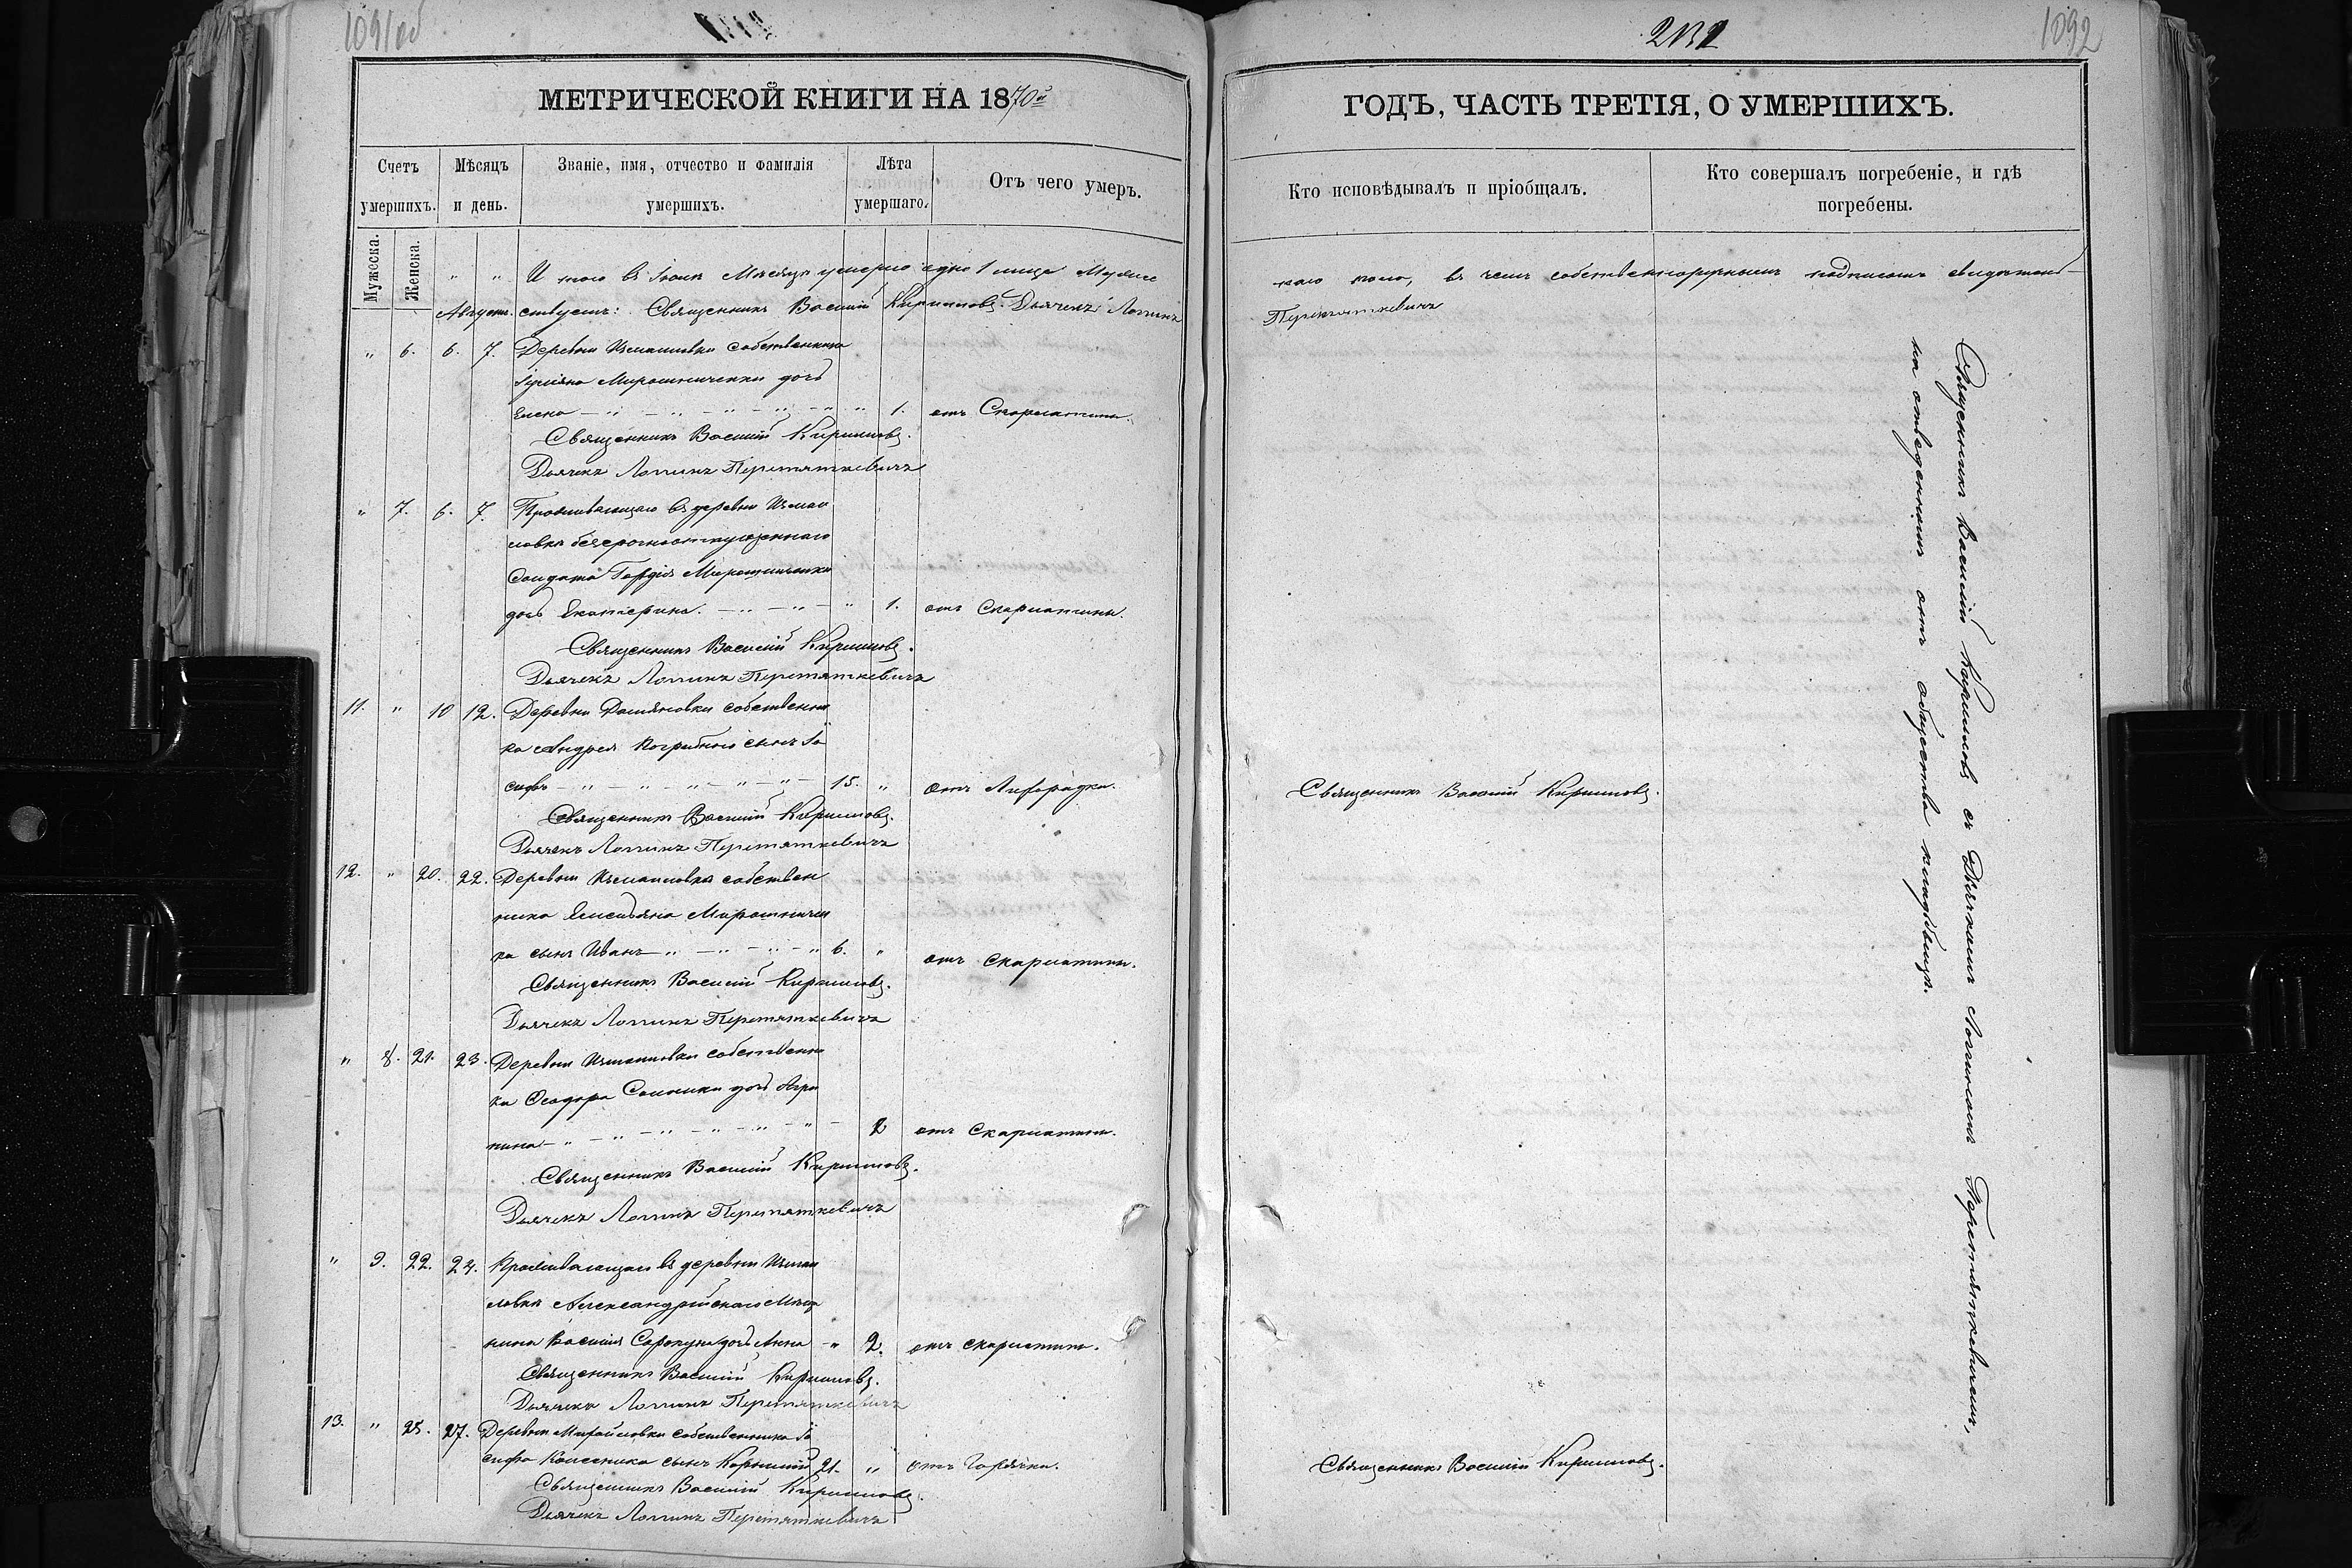 1091об
2132
1092
МЕТРИЧЕСКОЙ КНИГИ НА 1870й
ГОДЪ, ЧАСТЬ ТРЕТІЯ, О УМЕРШИХЪ.
Счетъ умершихъ.
Мѣсяцъ и день.
Званіе, имя, отчество и фамилія умершихъ.
Лѣта умершаго.
Отъ чего умеръ.
Кто исповѣдывалъ и пріобщалъ.
Кто совершалъ погребеніе, и гдѣ погребены.
Мужеска.
Женска.
" " И того въ Іюлѣ Мѣсяцѣ умерло одно 1 лице Мужес
каго пола, въ чемъ собственноручнымъ подписомъ свидѣтель-
Августъ. ствуемъ: Священникъ Василій Кирилловъ. Дьячекъ Логинъ
Перетяткевичъ
" 6. 6. 7. Деревни Измаиловки собственника
Мирошниченки дочь
Елена 1. отъ Скарлатины.
Священникъ Василій Кирилловъ.
Дьячекъ Логинъ Перетяткевичъ
" 7. 6. 7. Проживающаго въ деревни Измаи
ловки безсрочноотпущеннаго
Солдата Гордія Мирошниченки
дочь Екатерина. " 1. отъ Скарлатины.
Священникъ Василій Кирилловъ.
Дьячекъ Логинъ Перетяткевичъ
11. " 10 12. Деревни собственни
ка Андрея Погрибнаго сынъ Іо
сифъ 15. " отъ Лихорадки.
Священникъ Василій Кирилловъ.
Священникъ Василій Кирилловъ.
Дьячекъ Логинъ Перетяткевичъ
12. " 20. 22. Деревни Измаиловки собствен
ника Емельяна Мирошничен
ка сынъ Иванъ 6. " отъ Скарлатины.
Священникъ Василій Кирилловъ.
Дьячекъ Логинъ Перетяткевичъ
" 8. 21. 23. Деревни Измаиловки собственни
ка Ѳеодора дочь Агри
пина 2 отъ Скарлатины.
Священникъ Василій Кирилловъ.
Дьячекъ Логинъ Перетяткевичъ
" 9. 22. 24. Проживающаго въ деревни Измаи
ловки Александрійскаго Мѣща
нина Василія Сорокуна дочь Анна " 2. отъ скарлатины.
Священникъ Василій Кирилловъ.
Дьячекъ Логинъ Перетяткевичъ
13. " 25. 27. Деревни Михайловки собственника Іо
сифа Колесника сынъ Корнилій 21. " отъ Горячки.
Священникъ Василій Кирилловъ.
Священникъ Василій Кирилловъ.
Дьячекъ Логинъ Перетяткевичъ
Священникъ Василій Кирилловъ съ Дьячкомъ Логиномъ Перетяткевичемъ,
на отведенномъ отъ общества кладбищѣ.